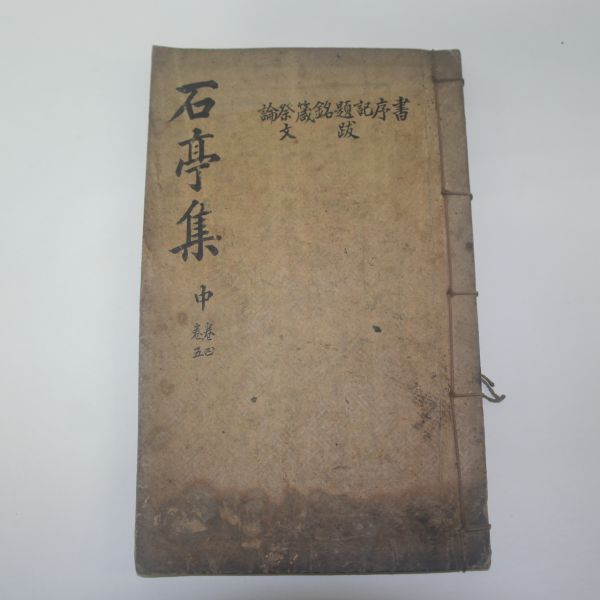 書序記題跋銘箴祭文論
石亭集 中
卷四
卷五